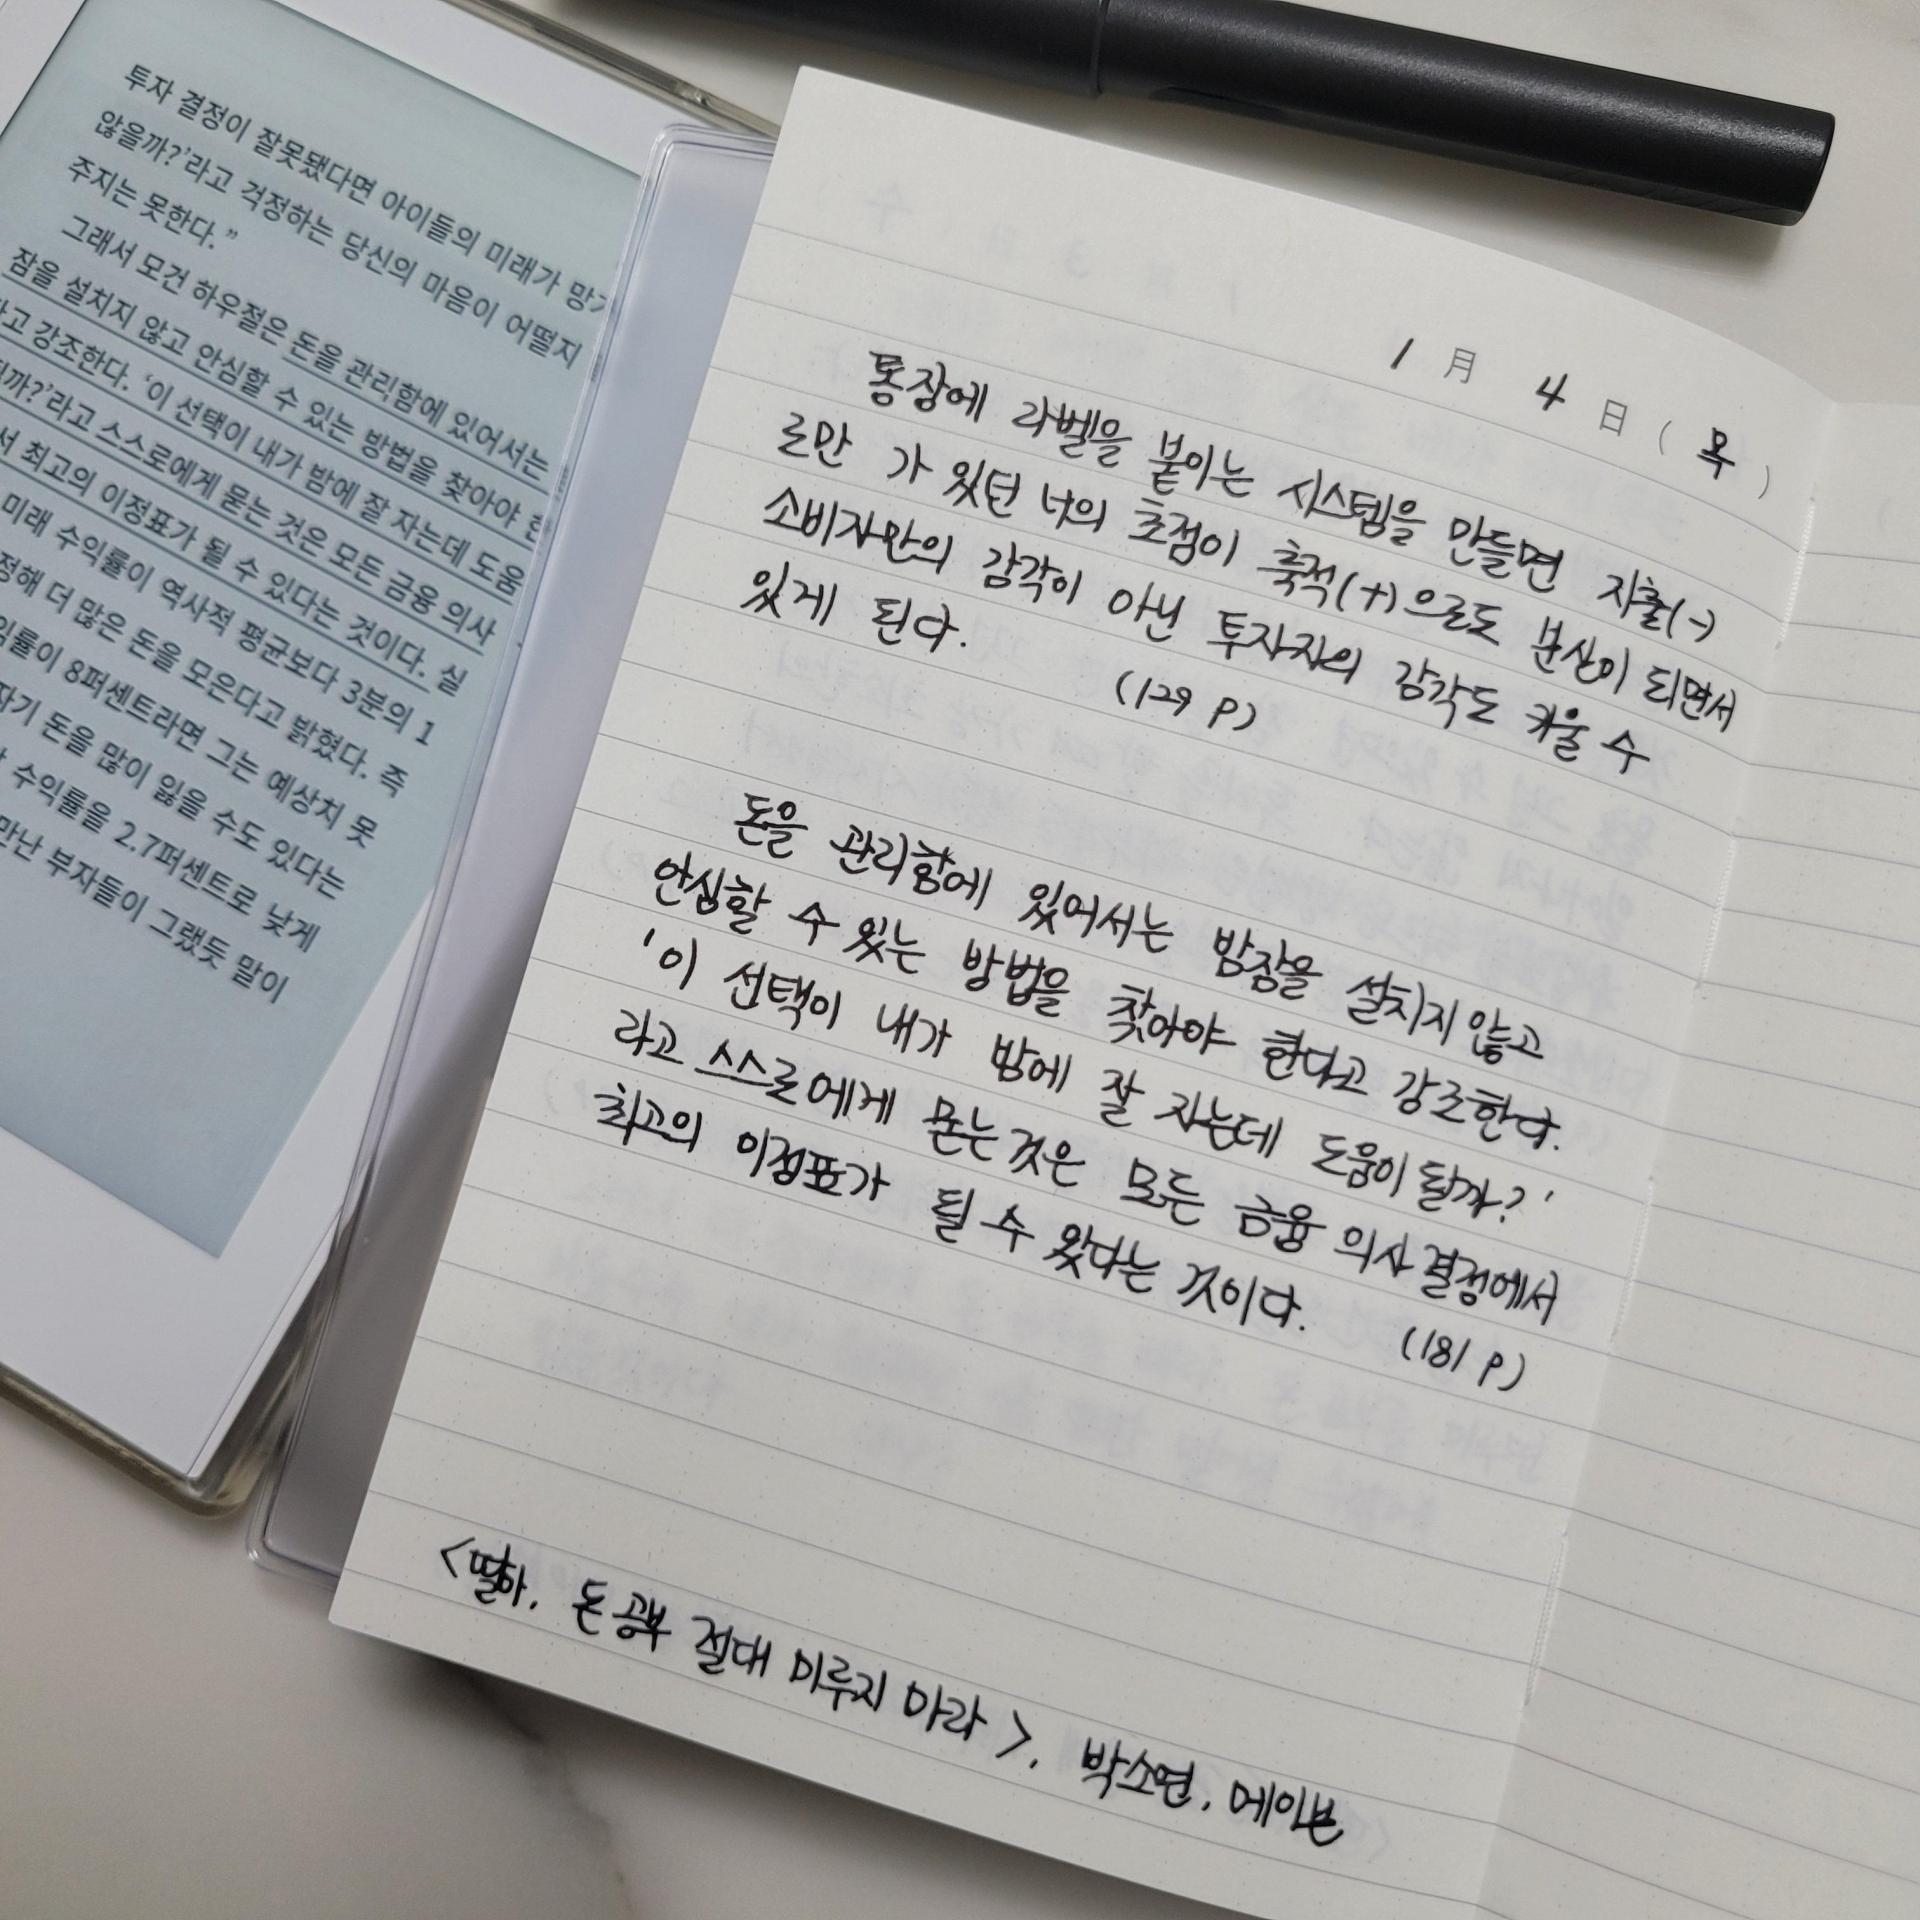 투자 결정이 잘못됐다면 아이들의 미래가
않을까?’라고 걱정하는 당신의 마음이 어떨지
주지는 못한다.”
그래서 모건 하우절은 돈을 관리함에 있어서는
잠을 설치지 않고 안심할 수 있는 방법을 찾아야
강조한다. ‘이 선택이 내가 밤에 잘 자는데 도움
까?’라고 스스로에게 묻는 것은 모든 금융 의사
서 최고의 이정표가 될 수 있다는 것이다. 실
미래 수익률이 역사적 평균보다 3분의 1
정해 더 많은 돈을 모은다고 밝혔다. 즉
익률이 8퍼센트라면 그는 예상치 못
자기 돈을 많이 잃을 수도 있다는
수익률을 2.7퍼센트로 낮게
만난 부자들이 그랬듯 말이
1 月 4 日 ( 목 )
통장에 라벨을 붙이는 시스템을 만들면 지출(-)
로만 가 있던 너의 초점이 축적(+)으로도 분산이 되면서
소비자만의 감각이 아닌 투자자의 감각도 키울 수
있게 된다.
(129 p)
돈을 관리함에 있어서는 밤잠을 설치지 않고
안심할 수 있는 방법을 찾아야 한다고 강조한다.
'이 선택이 내가 밤에 잘 자는데 도움이 될까?'
라고 스스로에게 묻는 것은 모든 금융 의사 결정에서
최고의 이정표가 될 수 있다는 것이다.
(181 p)
<딸아, 돈 공부 절대 미루지 마라>, 박소연, 메이븐